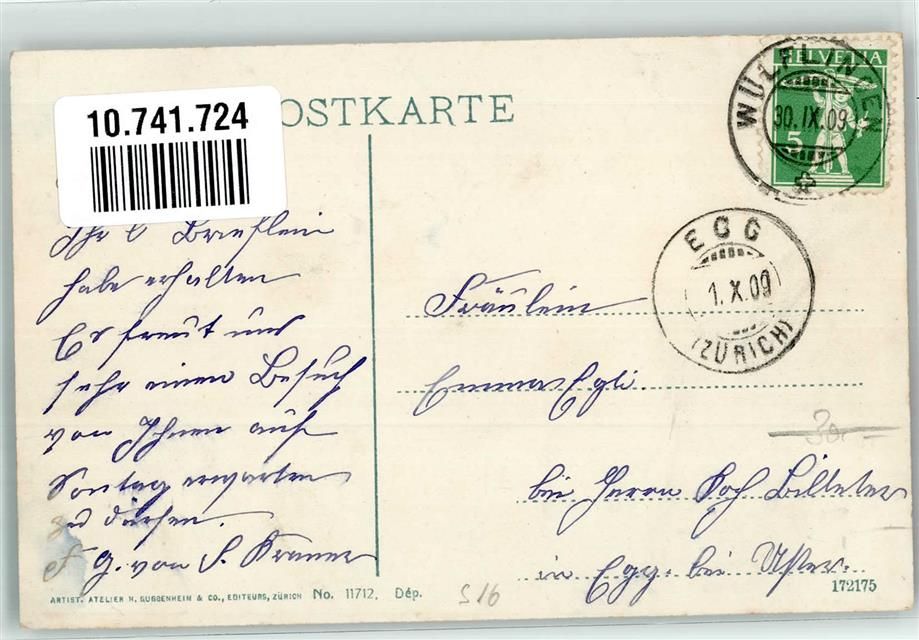 10.741.724
POSTKARTE
HELVETIA
5
WÜLFLINGEN
30.IX.09
EGG
1.X.09
(ZÜRICH)
Ihr l. Brieflein
habe erhalten
Es freut uns
sehr einen Besuch
von Ihnen auf
Sontag erwarten
zu dürfen.
f G. von S.
Fräulein
Emma Egli.
bei Herrn Hch Billeter
in Egg. bei Uster.
30.-
ARTIST. ATELIER H. GUGGENHEIM & CO., EDITEURS, ZÜRICH No. 11712. Dép.
S16
172175